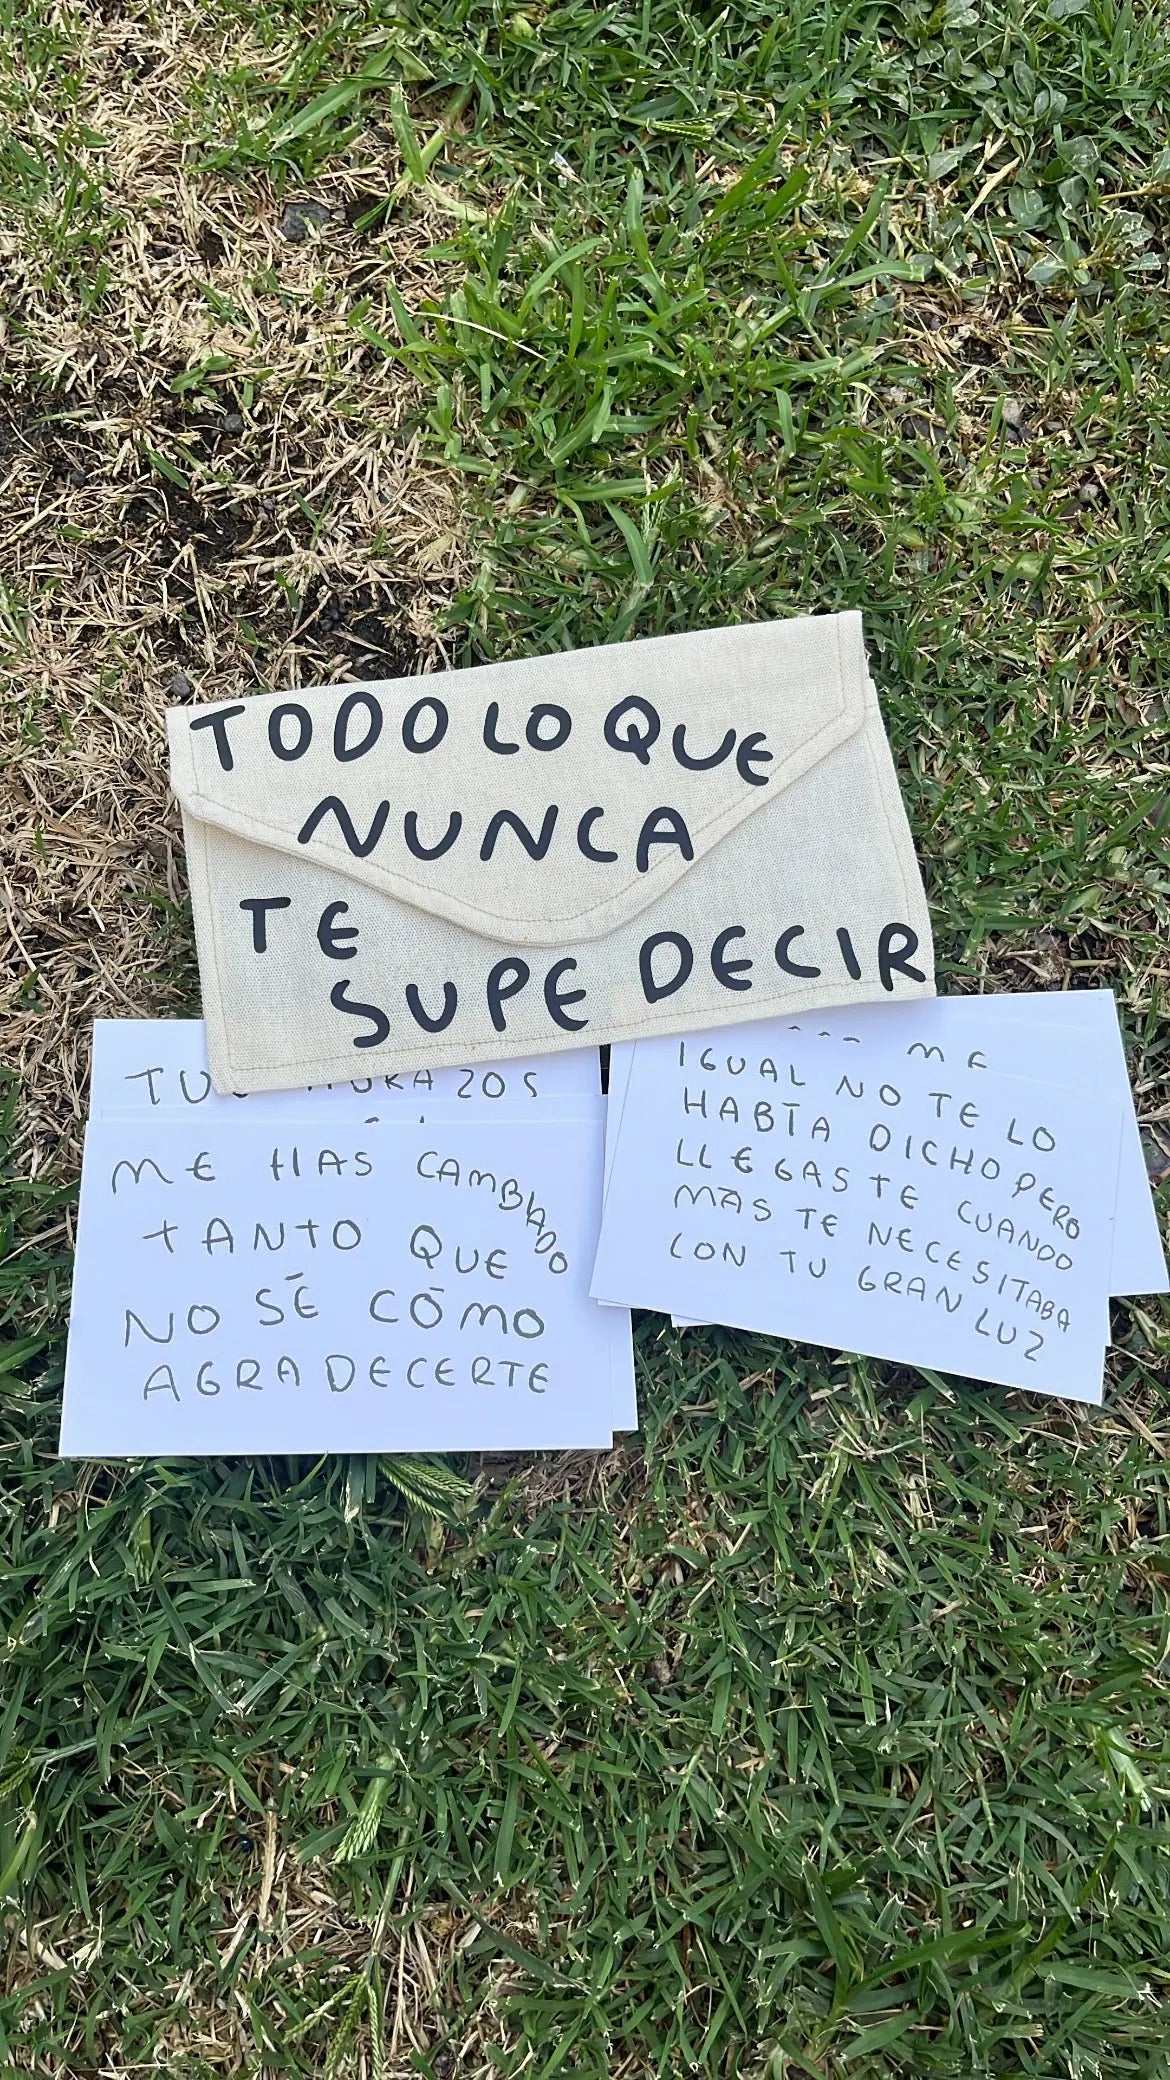 TODO LO QUE
NUNCA
TE
SUPE DECIR
ZOS
ME HAS CAMBIADO
TANTO QUE
NO SÉ CÓMO
AGRADECERTE
ME
IGUAL NO TE LO
HABÍA DICHO PERO
LLEGASTE CUANDO
MÁS TE NECESITABA
CON TU GRAN LUZ